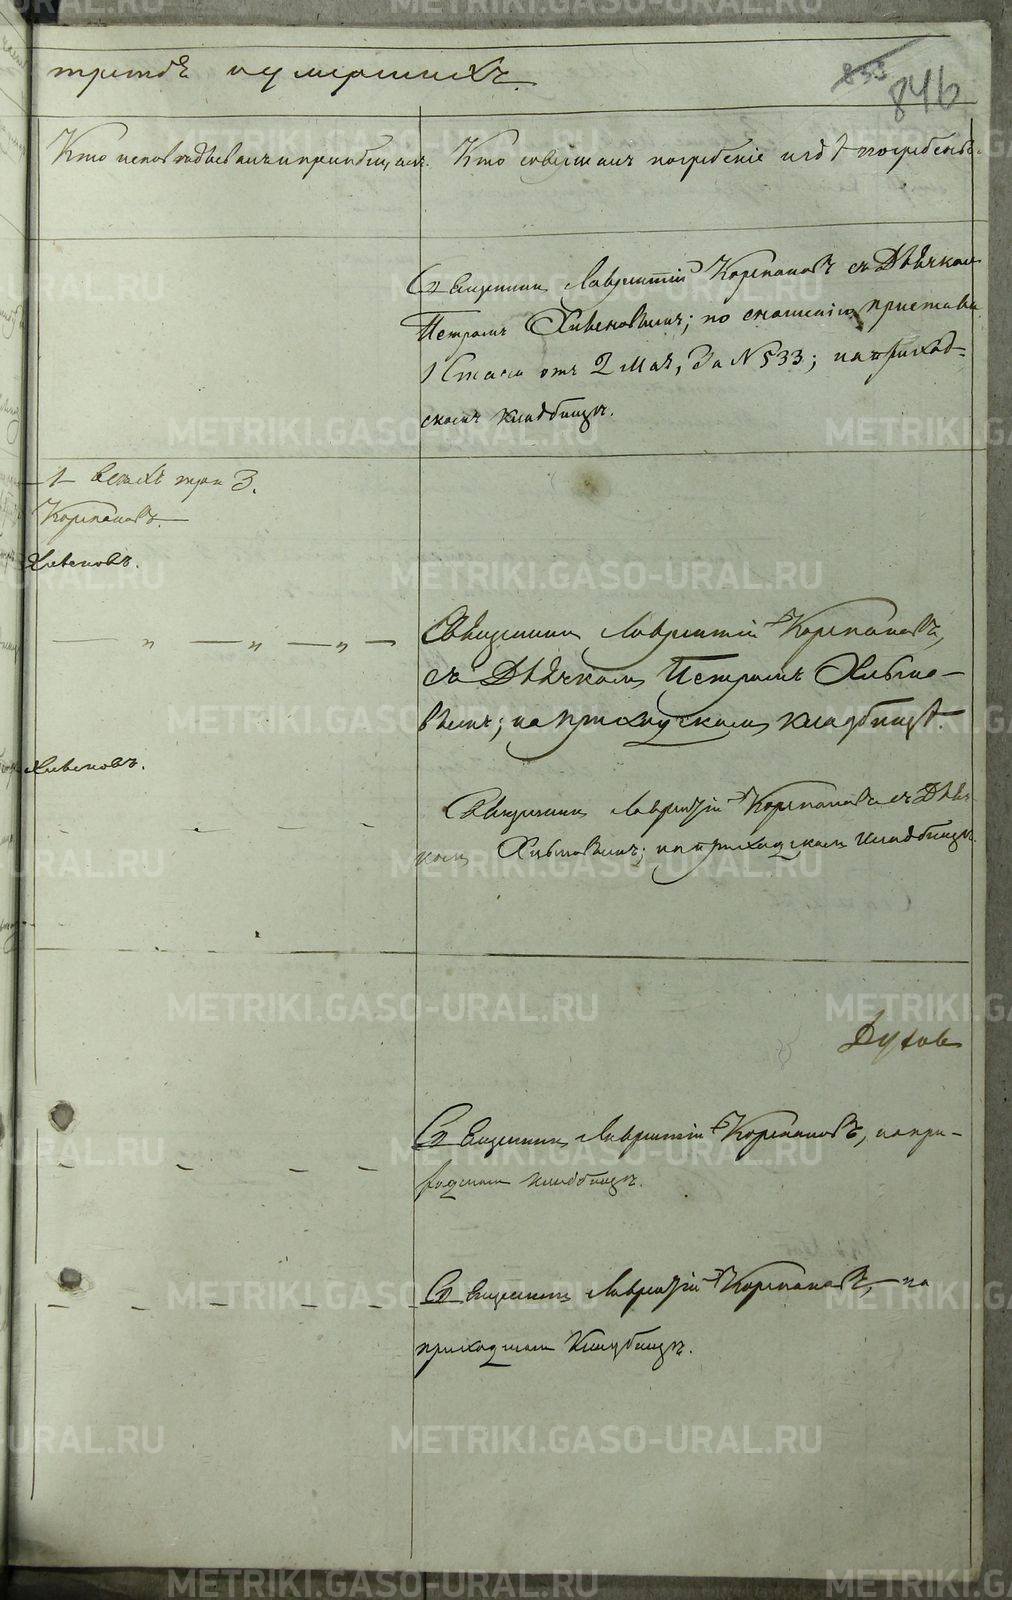 третья о умершихъ.
853
846
Кто исповѣдывалъ и пріобщалъ.
Кто совершалъ погребеніе и гдѣ погребены.
Священникъ Лаврентій Корепановъ съ Дьячкомъ
Петромъ Хлѣбновымъ; по сношенію пристава
1 Стана отъ 2 мая, за N 533; на приход-
скомъ кладбищѣ.
всѣхъ три 3.
Корепановъ.
Священникъ Лаврентій Корепановъ,
съ Дьячкомъ Петромъ
на приходскомъ кладбищѣ.
Священникъ Лаврентій Корепановъ съ Дьяч-
комъ на приходскомъ кладбищѣ.
Духов
Священникъ Лаврентій Корепановъ, на при-
ходскомъ кладбищѣ.
Священникъ Лаврентій Корепановъ, на
приходскомъ Кладбищѣ.
METRIKI.GASO-URAL.RU